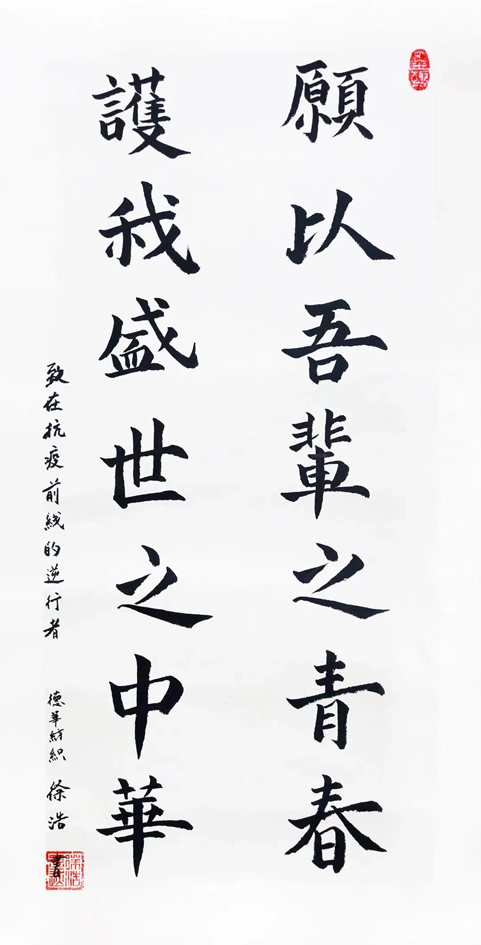 願以吾輩之青春
護我盛世之中華
致在抗疫前线的逆行者
德华纺织 徐浩
書